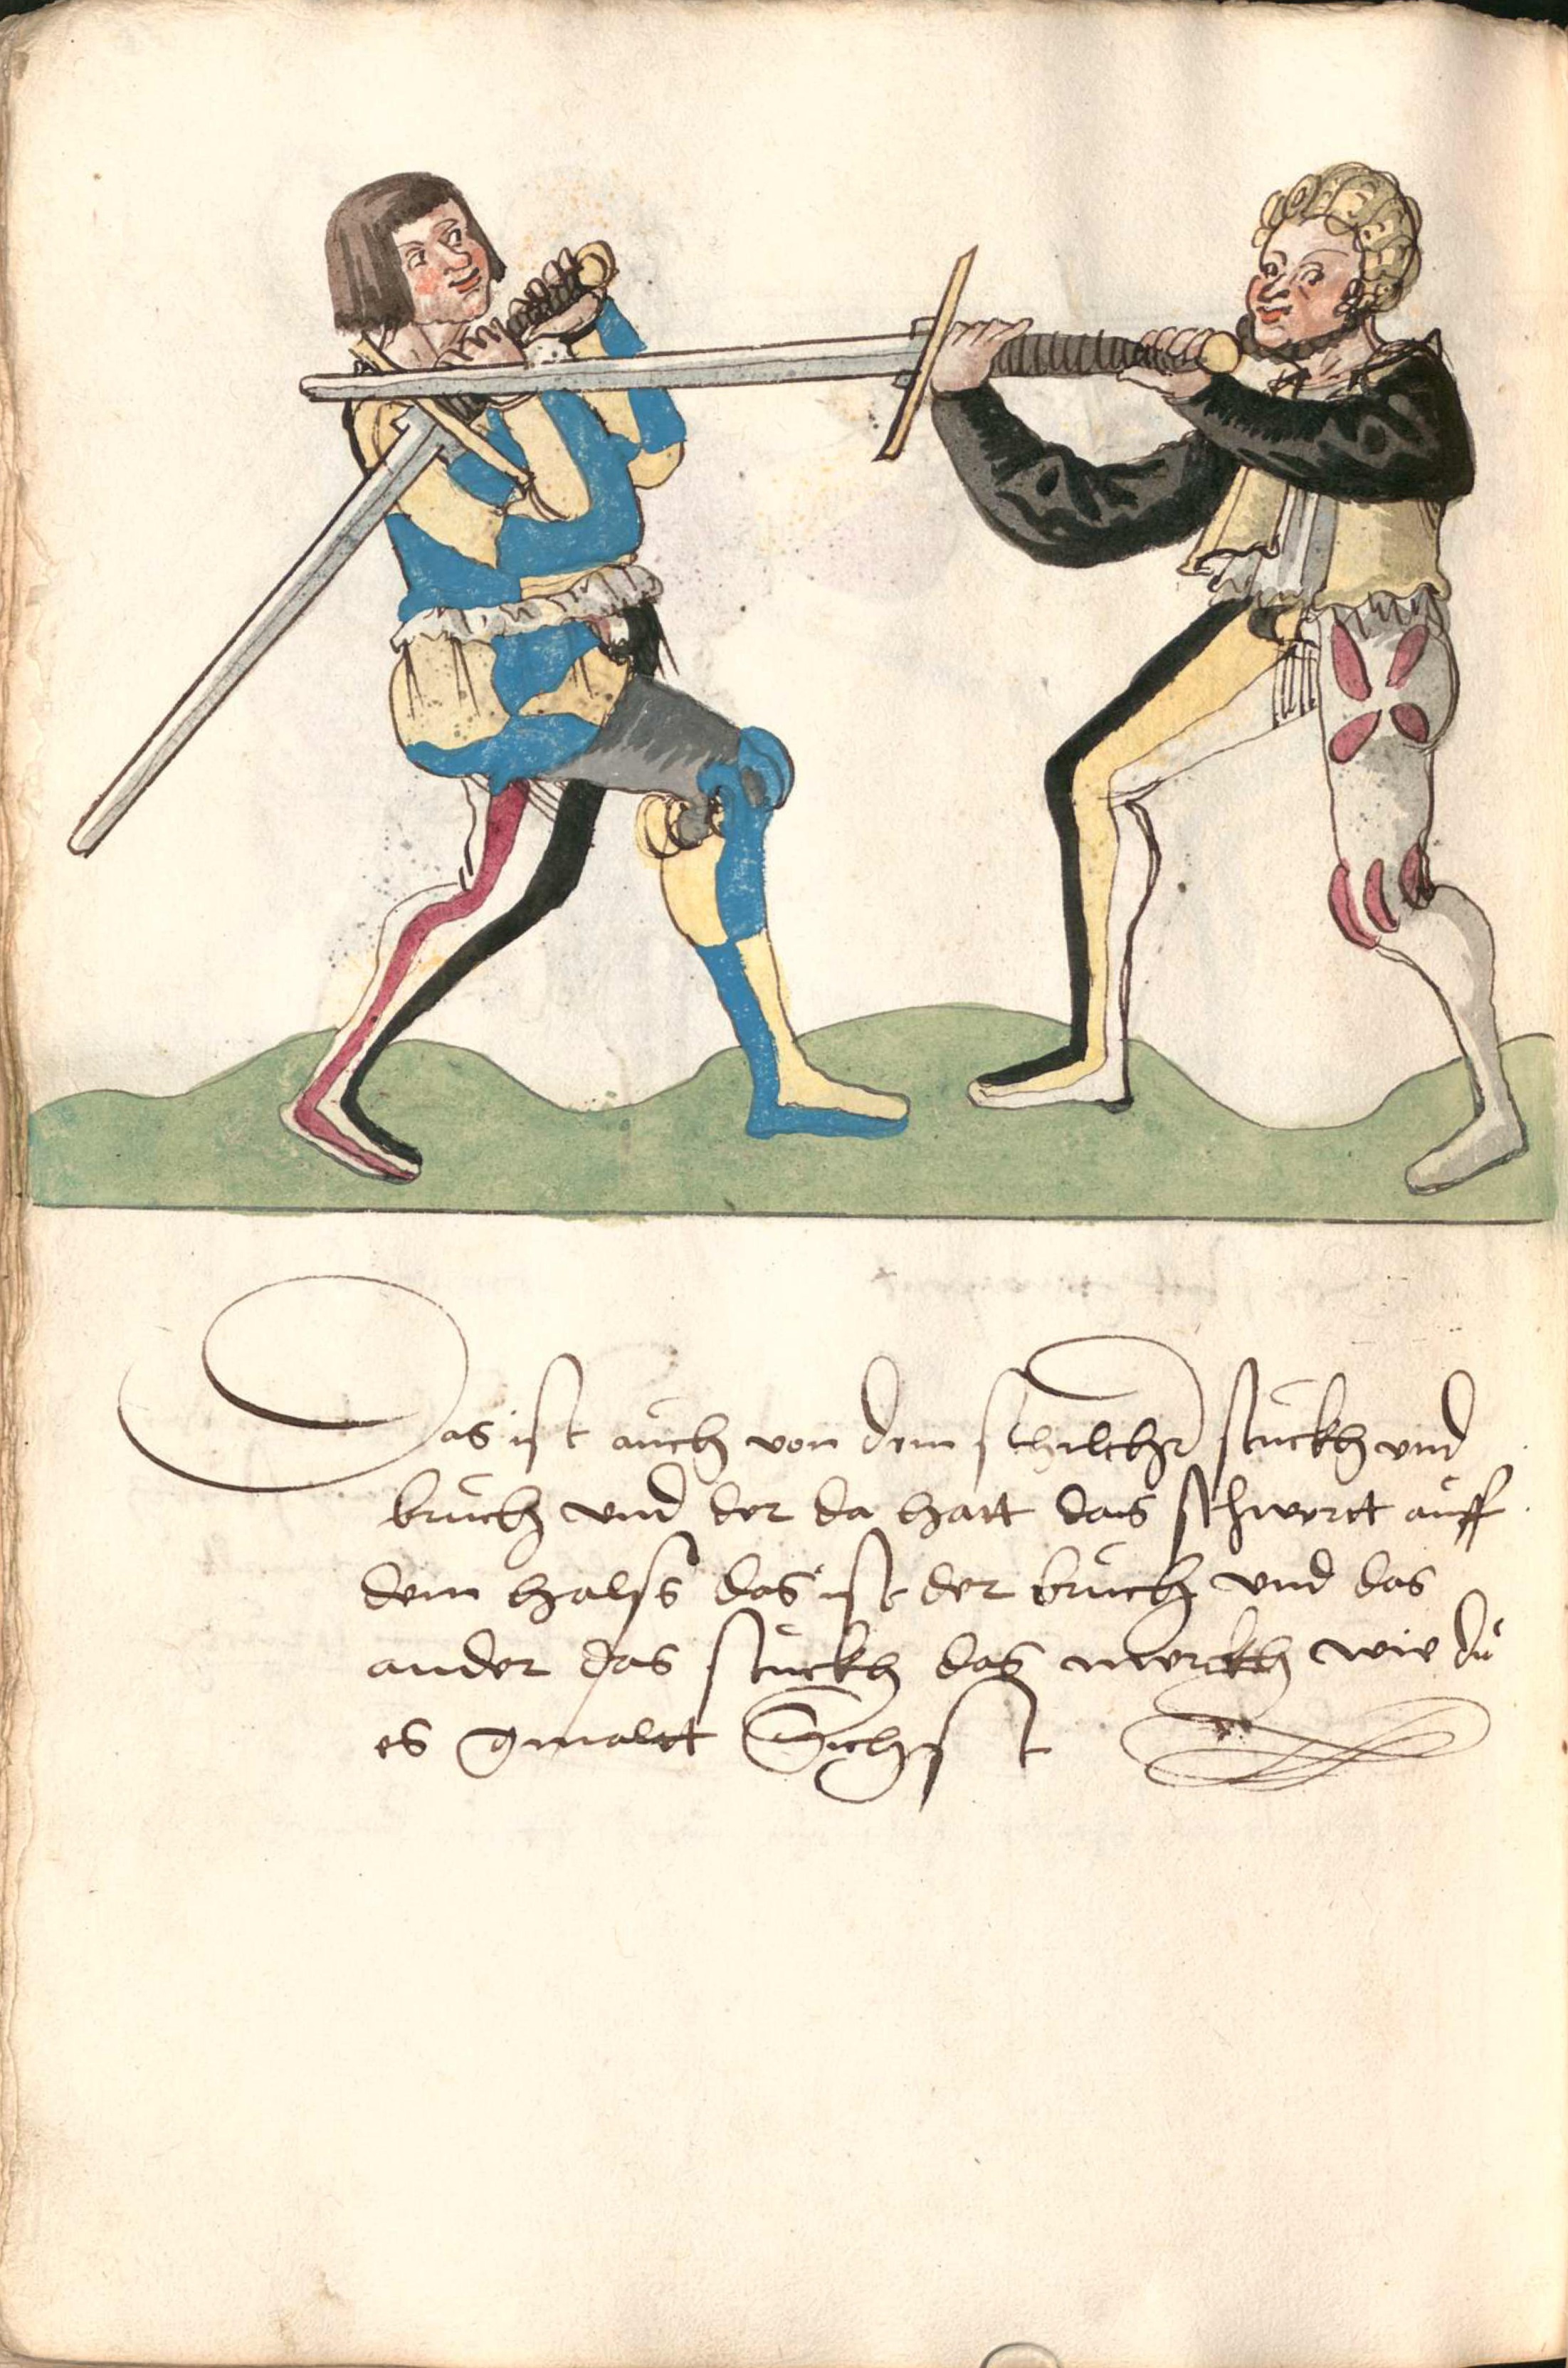 Das ist auch von dem schilcher stuckh vnd
bruch vnd der da hatt das schwertt auff
dem halss das ist der bruch vnd das
ander das stuckh das merckh wie du
es gmaltt Sichst